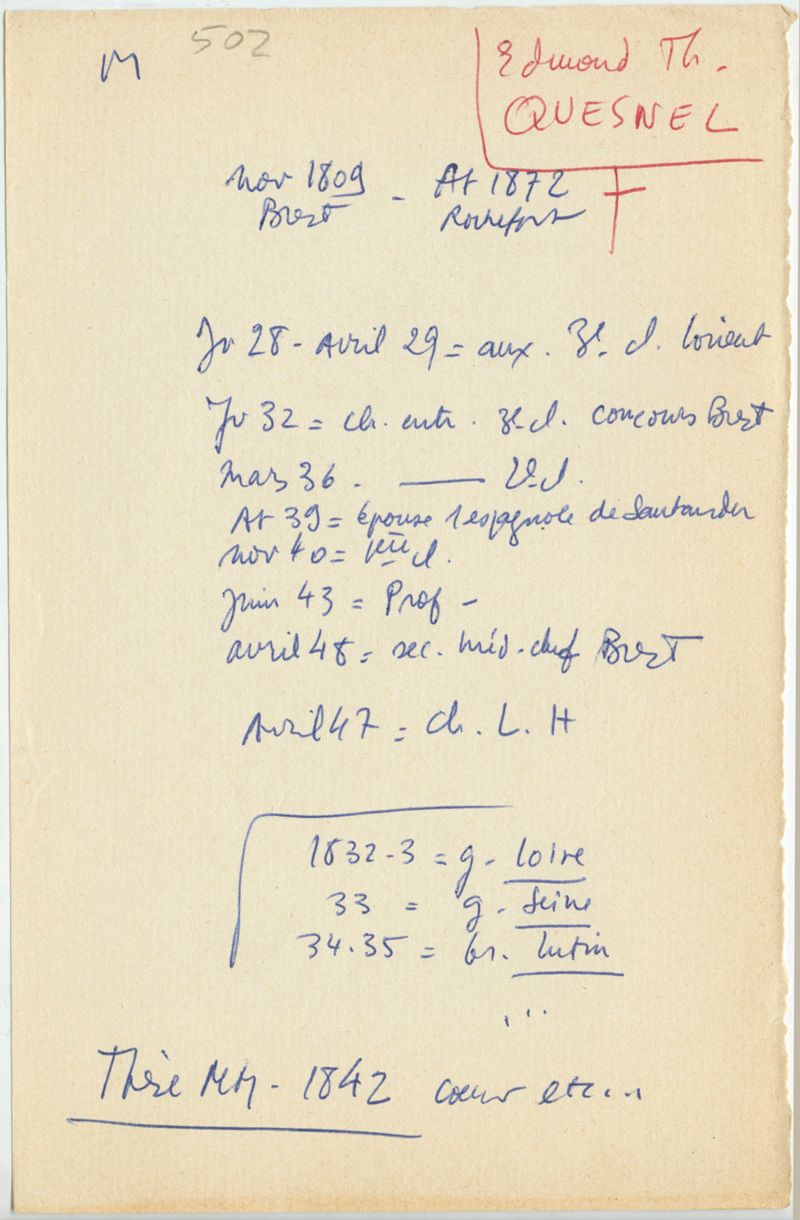 M 502
Edmond Th.
QUESNEL
nov 1809 - At 1872
Brest Rochefort
Jv 28 - avril 29 = aux. 3e cl. Lorient
Jv 32 = ch. entr. 3e cl. concours Brest
Mars 36 . —— 2e cl.
At 39 = épouse 1 espagnole de Santander
nov 40 = 1ère cl.
Juin 43 = Prof -
avril 48 = sec. méd. chef Brest
Avril 47 = ch. L. H
1832-3 = g. Loire
33 = g. Seine
34.35 = br. Lutin
...
Thèse - 1842 cœur etc...